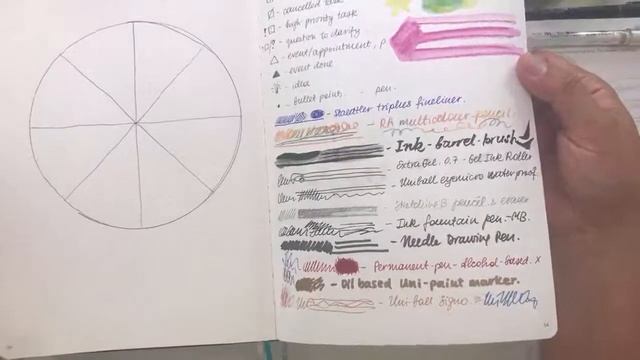 cancelled task
- high priority task
- question to clarify
- event/appointment, P
- event done
- idea
- bullet point. - pen.
- Staedtler triplus fineliner.
- RA multicolour-pencil.
- Ink-barrel-brush
Extra Gel. 0.7 - Gel Ink Roller
Uniball eyemicro waterproof
Sketching B pencil & eraser
Ink fountain pen - MB.
- Needle Drawing Pen.
- Permanent-pen-alcohol-based. X
- Oil based Uni-paint marker.
- Uni ball Signo